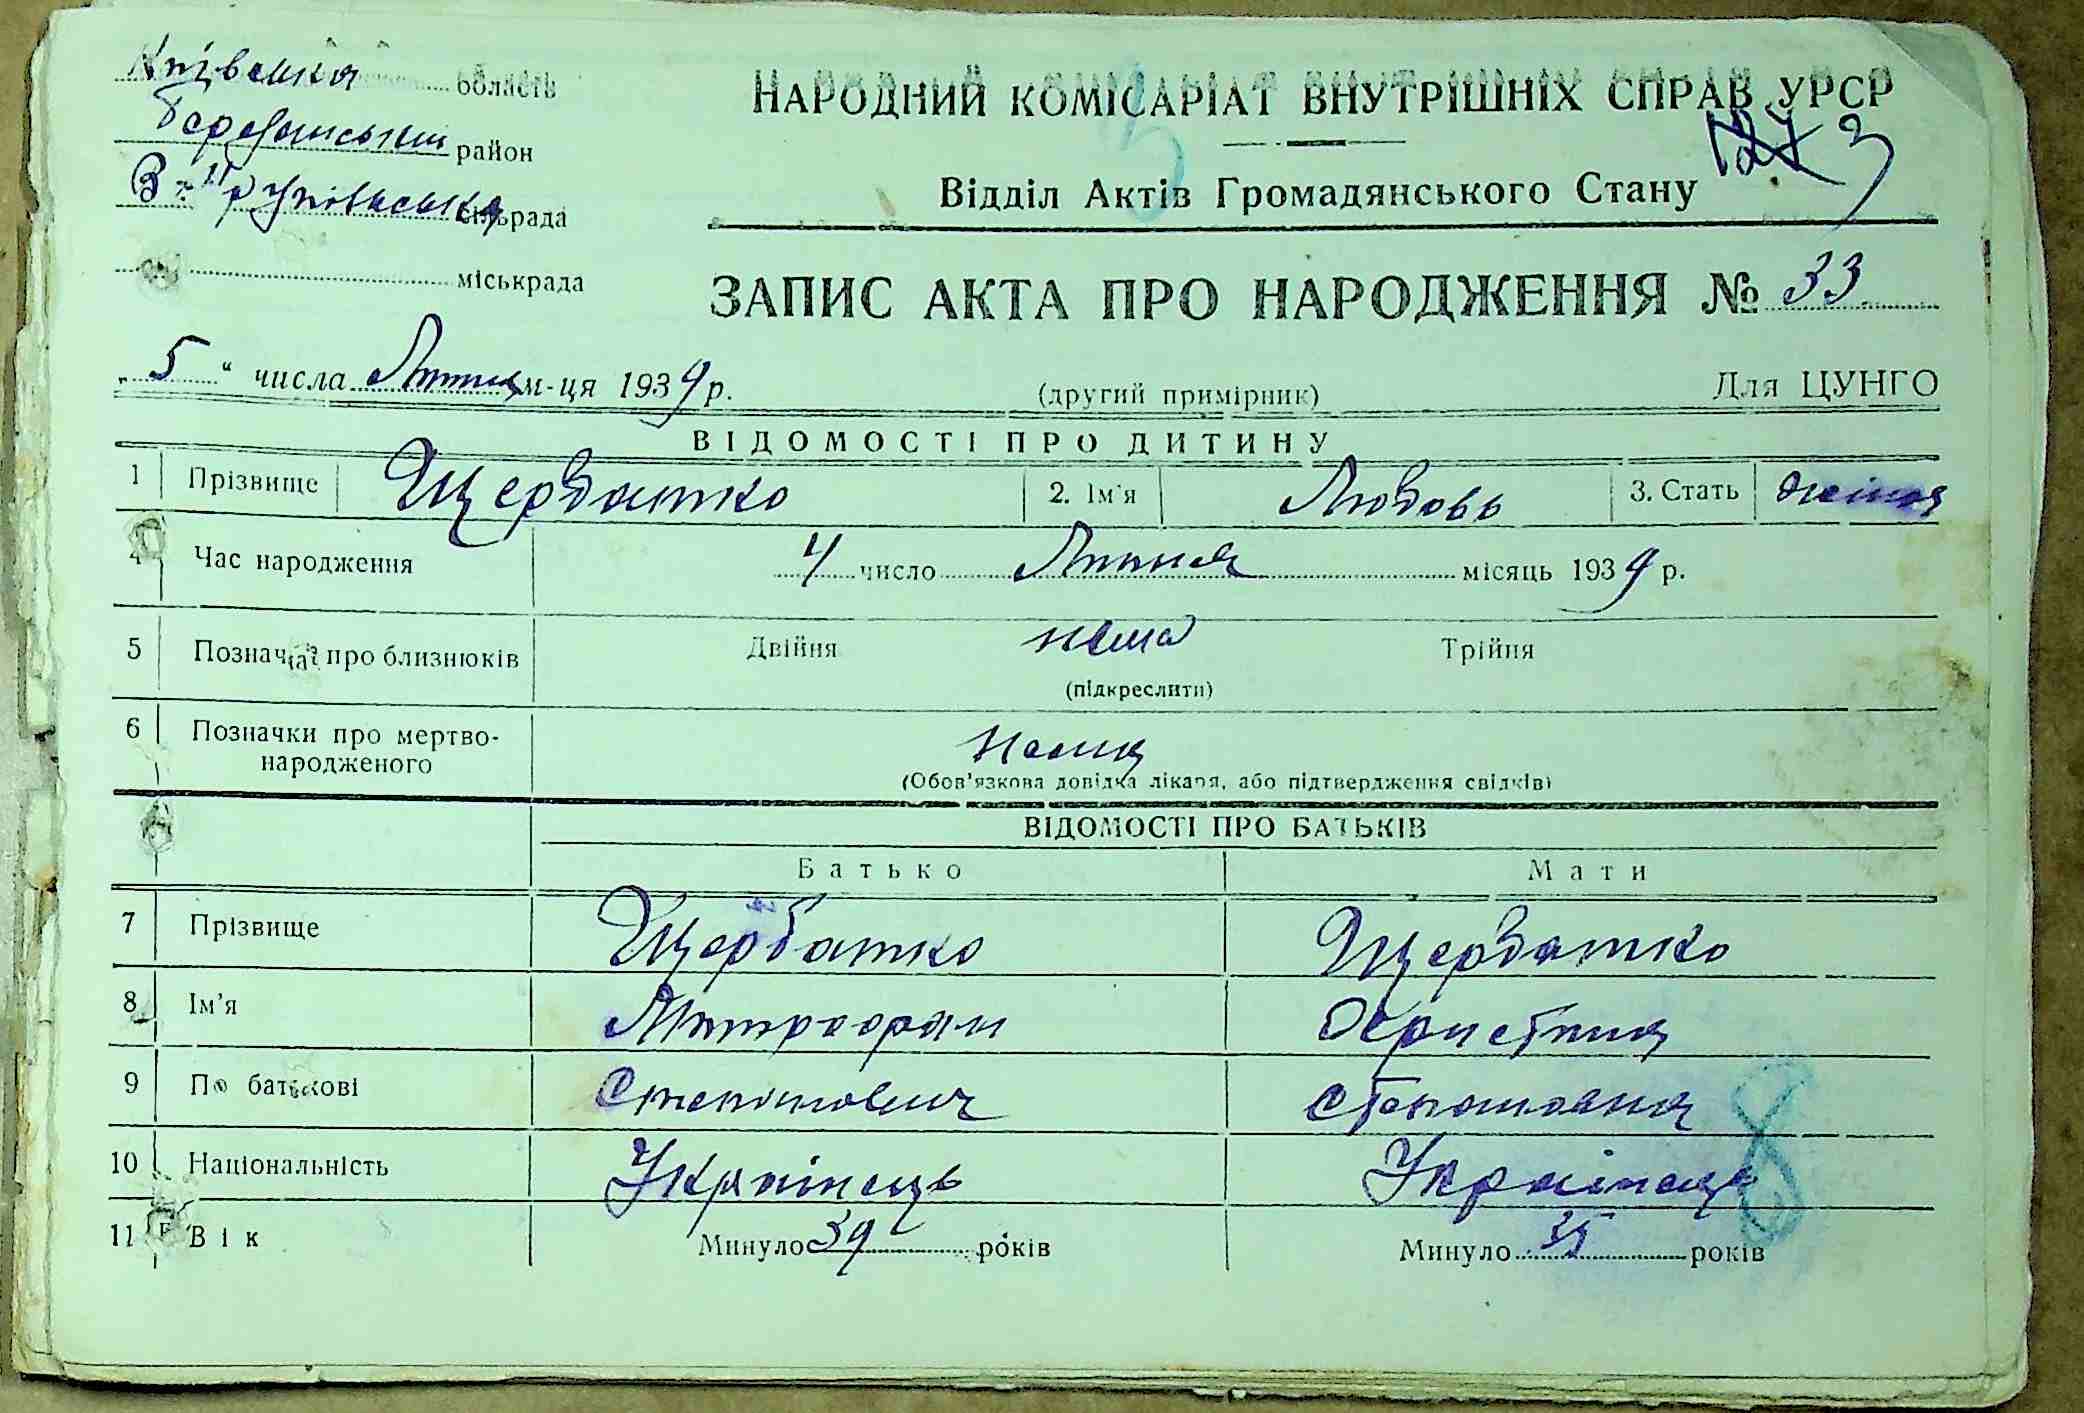 Київська область
Березанський район
В.-Крупільська сільрада
міськрада
НАРОДНИЙ КОМІСАРІАТ ВНУТРІШНІХ СПРАВ УРСР
3
Відділ Актів Громадянського Стану
ЗАПИС АКТА ПРО НАРОДЖЕННЯ № 33
„5“ числа Липня м-ця 1939 р. (другий примірник) Для ЦУНГО
ВІДОМОСТІ ПРО ДИТИНУ
1 Прізвище Щербатко 2. Ім'я Любовь 3. Стать жіноча
4 Час народження 4 число Липня місяць 1939 р.
5 Позначки про близнюків Двійня нема Трійня
(підкреслити)
6 Позначки про мертво-
народженого
(Обов'язкова довідка лікаря, або підтвердження свідків)
ВІДОМОСТІ ПРО БАТЬКІВ
Батько Мати
7 Прізвище Щербатко Щербатко
8 Ім'я Митрофан Христина
9 По батькові Степанович Степановна
10 Національність Українець Українець
11 Вік Минуло 39 років Минуло 35 років
8